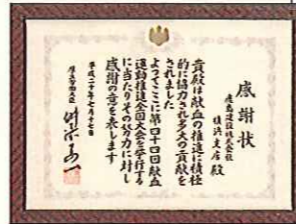 感謝状
鹿島建設株式会社
横浜支店 殿
貴殿は献血の推進に積極
的に協力され多大の貢献を
されました
よってここに第四十四回献血
運動推進全国大会を挙行する
に当たりその努力に対し
感謝の意を表します
平成二十年七月十七日
厚生労働大臣
舛添要一